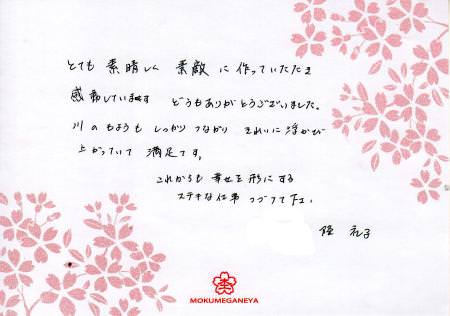 とても 素晴しく 素敵 に 作っていただき
感動しています どうもありがとうございました。
川 の もようも しっかり つながり きれいに 浮かび
上がっていて 満足です。
これからも 幸せを 形にする
ステキな仕事 つづけて下さい。
MOKUMEGANEYA